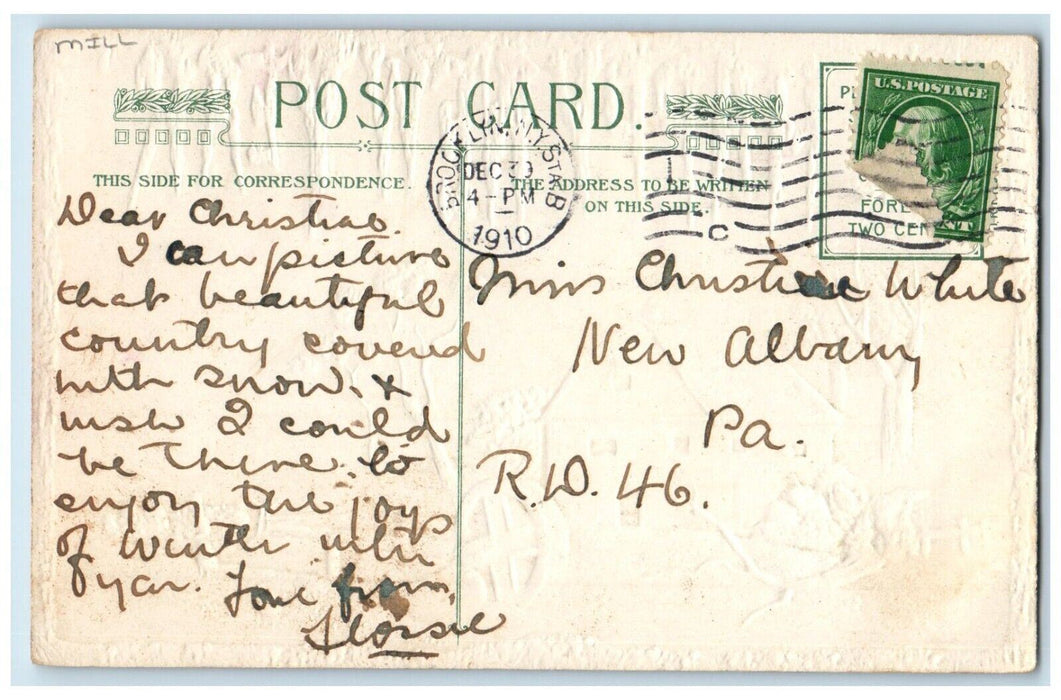 MILL
POST CARD.
THIS SIDE FOR CORRESPONDENCE.
THE ADDRESS TO BE WRITTEN
ON THIS SIDE.
BROOKLYN, N.Y. STA B
DEC 30
4 - PM
1910
C
U.S. POSTAGE
FORE
TWO CEN
Dear Christine.
I can picture
that beautiful
country covered
with snow. &
wish I could
be there to
enjoy the joys
of winter with
you. Love from
Flossie
Miss Christine White
New Albany
Pa.
R.D. 46.